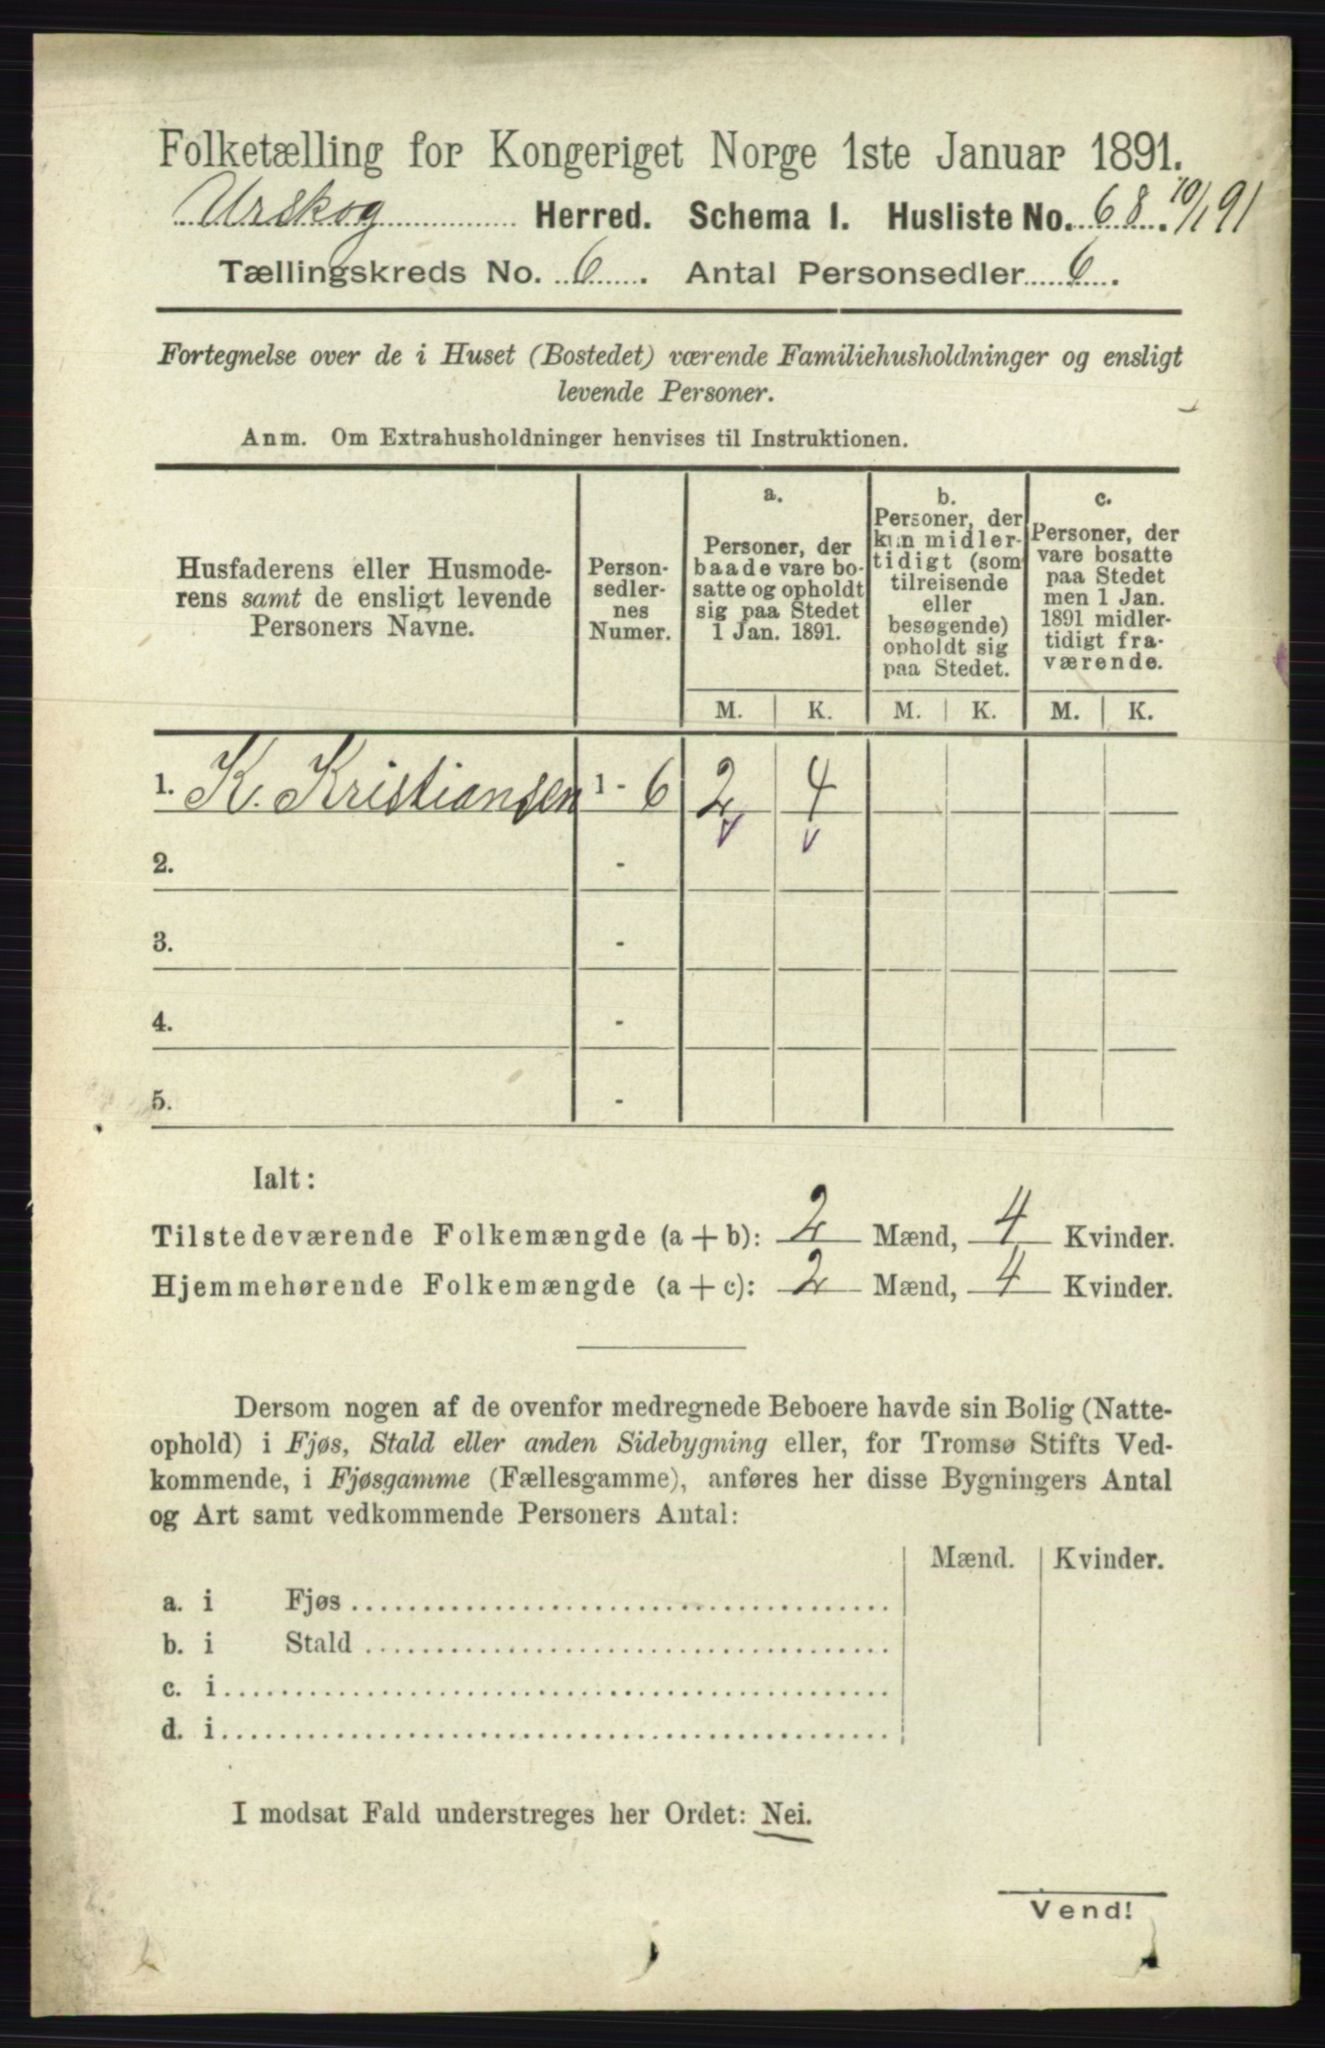 Folketælling for Kongeriget Norge 1ste Januar 1891.
Urskog Herred. Schema I. Husliste No. 68. 10/1 91
Tællingskreds No. 6. Antal Personsedler 6.
Fortegnelse over de i Huset (Bostedet) værende Familiehusholdninger og ensligt
levende Personer.
Anm. Om Extrahusholdninger henvises til Instruktionen.
Husfaderens eller Husmode-
rens samt de ensligt levende
Personers Navne.
Person-
sedler-
nes
Numer.
a.
Personer, der
baade vare bo-
satte og opholdt
sig paa Stedet
1 Jan. 1891.
b.
Personer, der
kun midler-
tidigt (som
tilreisende
eller
besøgende)
opholdt sig
paa Stedet.
c.
Personer, der
vare bosatte
paa Stedet
men 1 Jan.
1891 midler-
tidigt fra-
værende.
M. K. M. K. M. K.
1. K. Kristiansen 1 - 6 2 4
2. -
3. -
4. -
5. -
Ialt:
Tilstedeværende Folkemængde (a + b): 2 Mænd, 4 Kvinder.
Hjemmehørende Folkemængde (a + c): 2 Mænd, 4 Kvinder.
Dersom nogen af de ovenfor medregnede Beboere havde sin Bolig (Natte-
ophold) i Fjøs, Stald eller anden Sidebygning eller, for Tromsø Stifts Ved-
kommende, i Fjøsgamme (Fællesgamme), anføres her disse Bygningers Antal
og Art samt vedkommende Personers Antal:
Mænd. Kvinder.
a. i Fjøs
b. i Stald
c. i
d. i
I modsat Fald understreges her Ordet: Nei.
Vend!